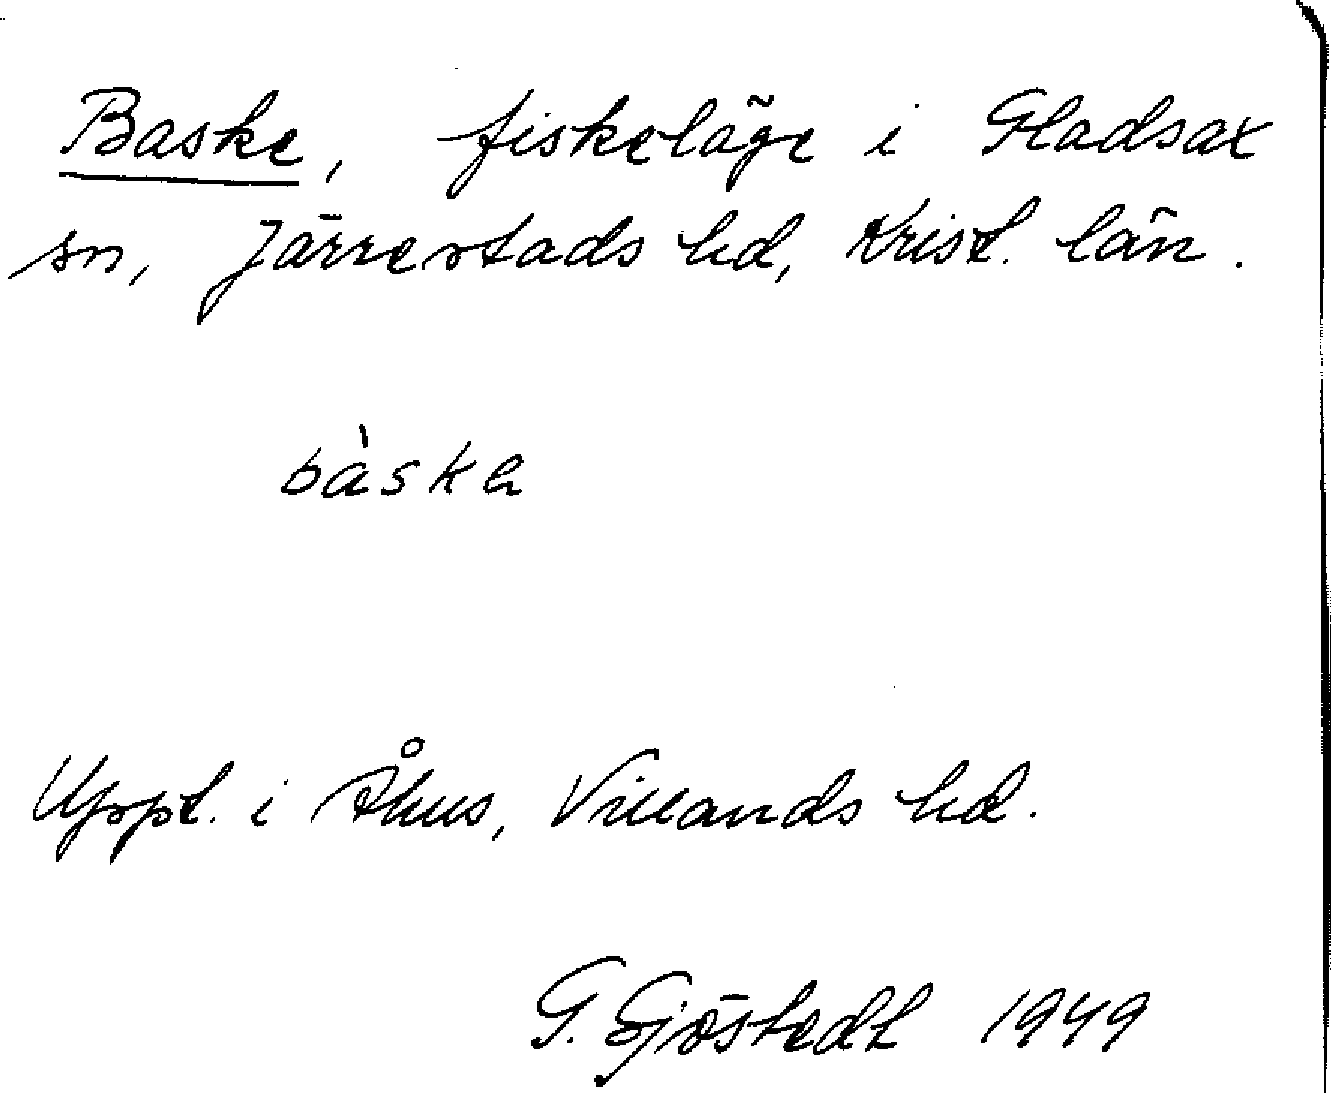 Baske, fiskeläge i Gladsax
sn, Järrestads hd, Krist. län.
bàska
Uppt. i Åhus, Villands hd.
G. Sjöstedt 1949